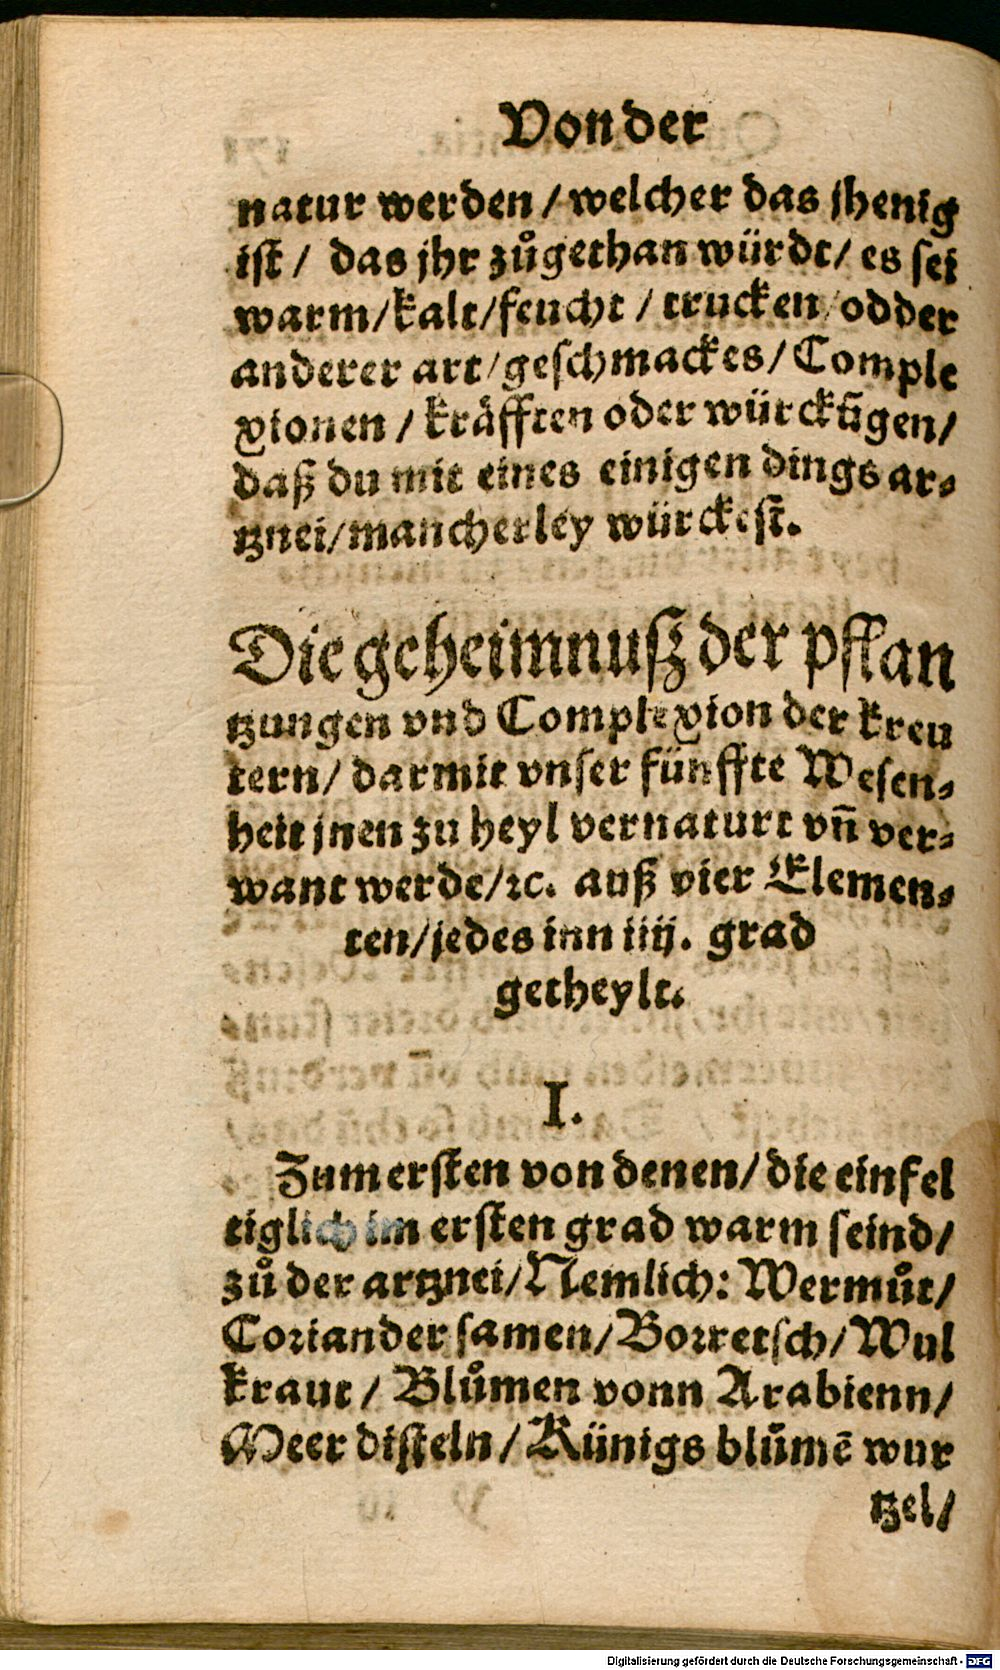 Von der
natur werden / welcher das jhenig
ist / das jhr zůgethan würdt / es sei
warm / kalt / feucht / trucken / odder
anderer art / geschmackes / Comple
xionen / kräfften oder würckũgen /
daß du mit eines einigen dings ar⸗
tznei / mancherley würckest.
Die geheimnusz der pflan
tzungen vnd Complexion der kreu
tern / darmit vnser fünffte Wesen⸗
heit jnen zu heyl vernaturt vñ ver⸗
want werde / ꝛc. auß vier Elemen⸗
ten / jedes inn iiij. grad
getheylt.
I.
Zum ersten von denen / die einfel
tiglich im ersten grad warm seind /
zů der artznei / Nemlich: Wermůt /
Coriander samen / Borretsch / Wul
kraut / Blůmen vonn Arabienn /
Meer disteln / Künigs blůmẽ wur
tzel /
Digitalisierung gefördert durch die Deutsche Forschungsgemeinschaft - DFG